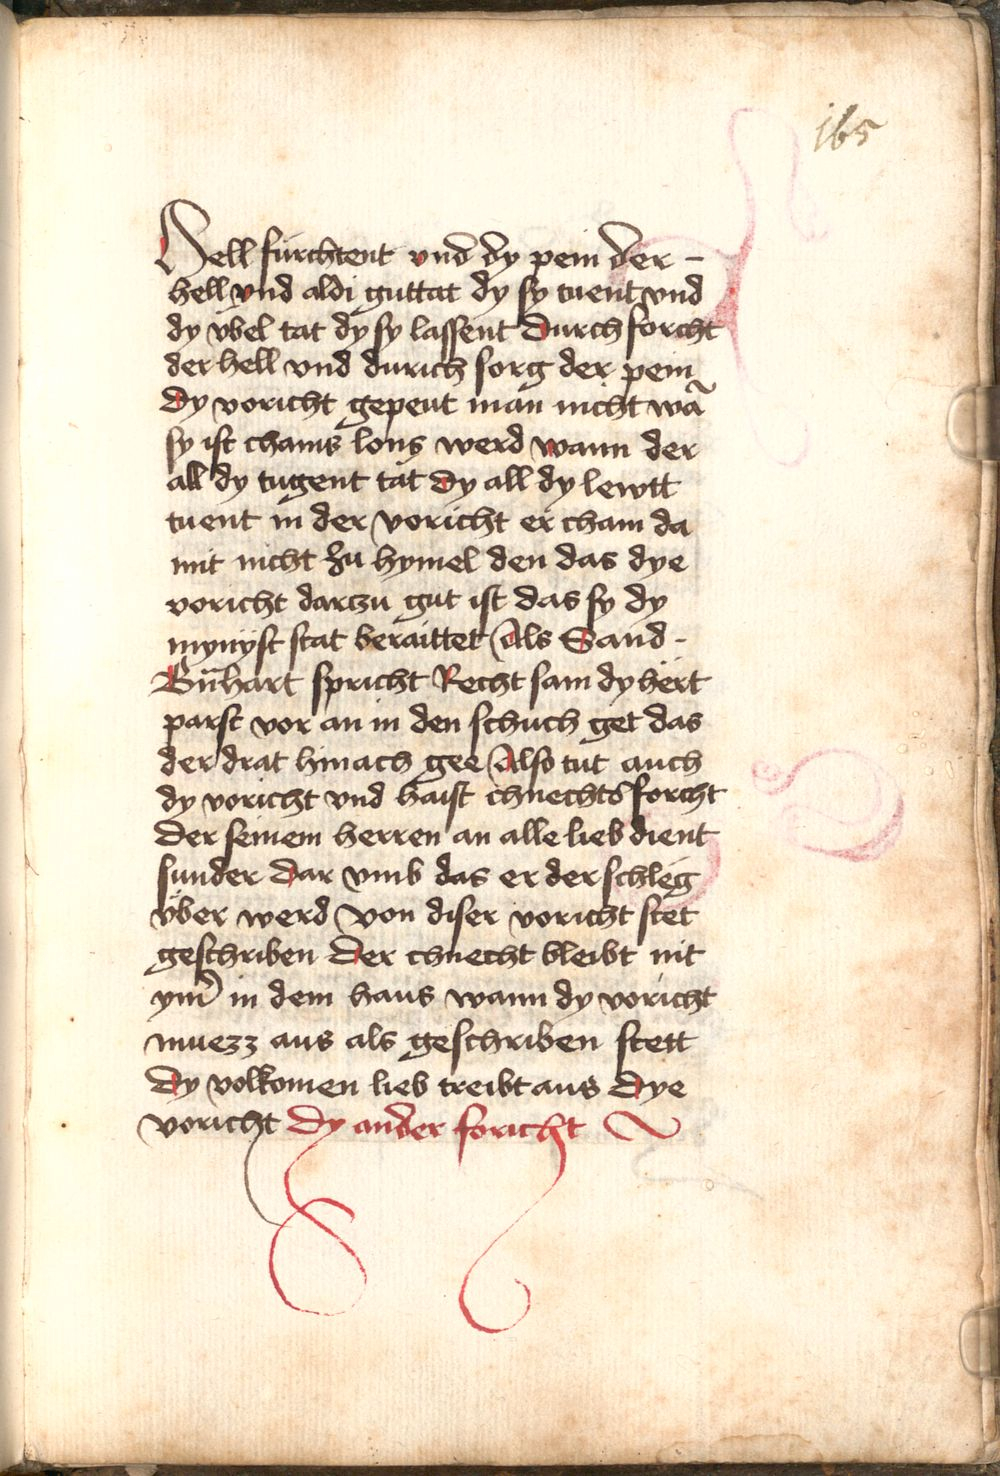 165
Hell fürchtent vnd dy pein der -
hell vnd aldi guttat dy sy tuent vnd
dy vbel tat dy sy lassent Durch forcht
der hell vnd durich sorg der pein
Dy voricht gepeut man nicht wan̄
sy ist chains lons werd wann der
all dy tugent tat Dy all dy lewtt
tuent in der voricht er cham da
mit nicht zu hymel den das dye
voricht darczu gut ist das sy dy
mynyst stat beraittet Als Sand -
Bn̄hart spricht Recht sam dy hërt
parst vor an in den schuch get das
der drat hinach gee Also tut auch
dy voricht vnd haist chnechts forcht
Der seinem herren an alle lieb dient
sunder Dar vmb das er der schleg
vber werd Von diser voricht stet
geschriben Der chnecht bleibt nit
ym̄ in dem haus wann dy voricht
muezz aus als geschriben stett
Dy volkomen lieb treibt aus Dye
voricht Dy ander foricht